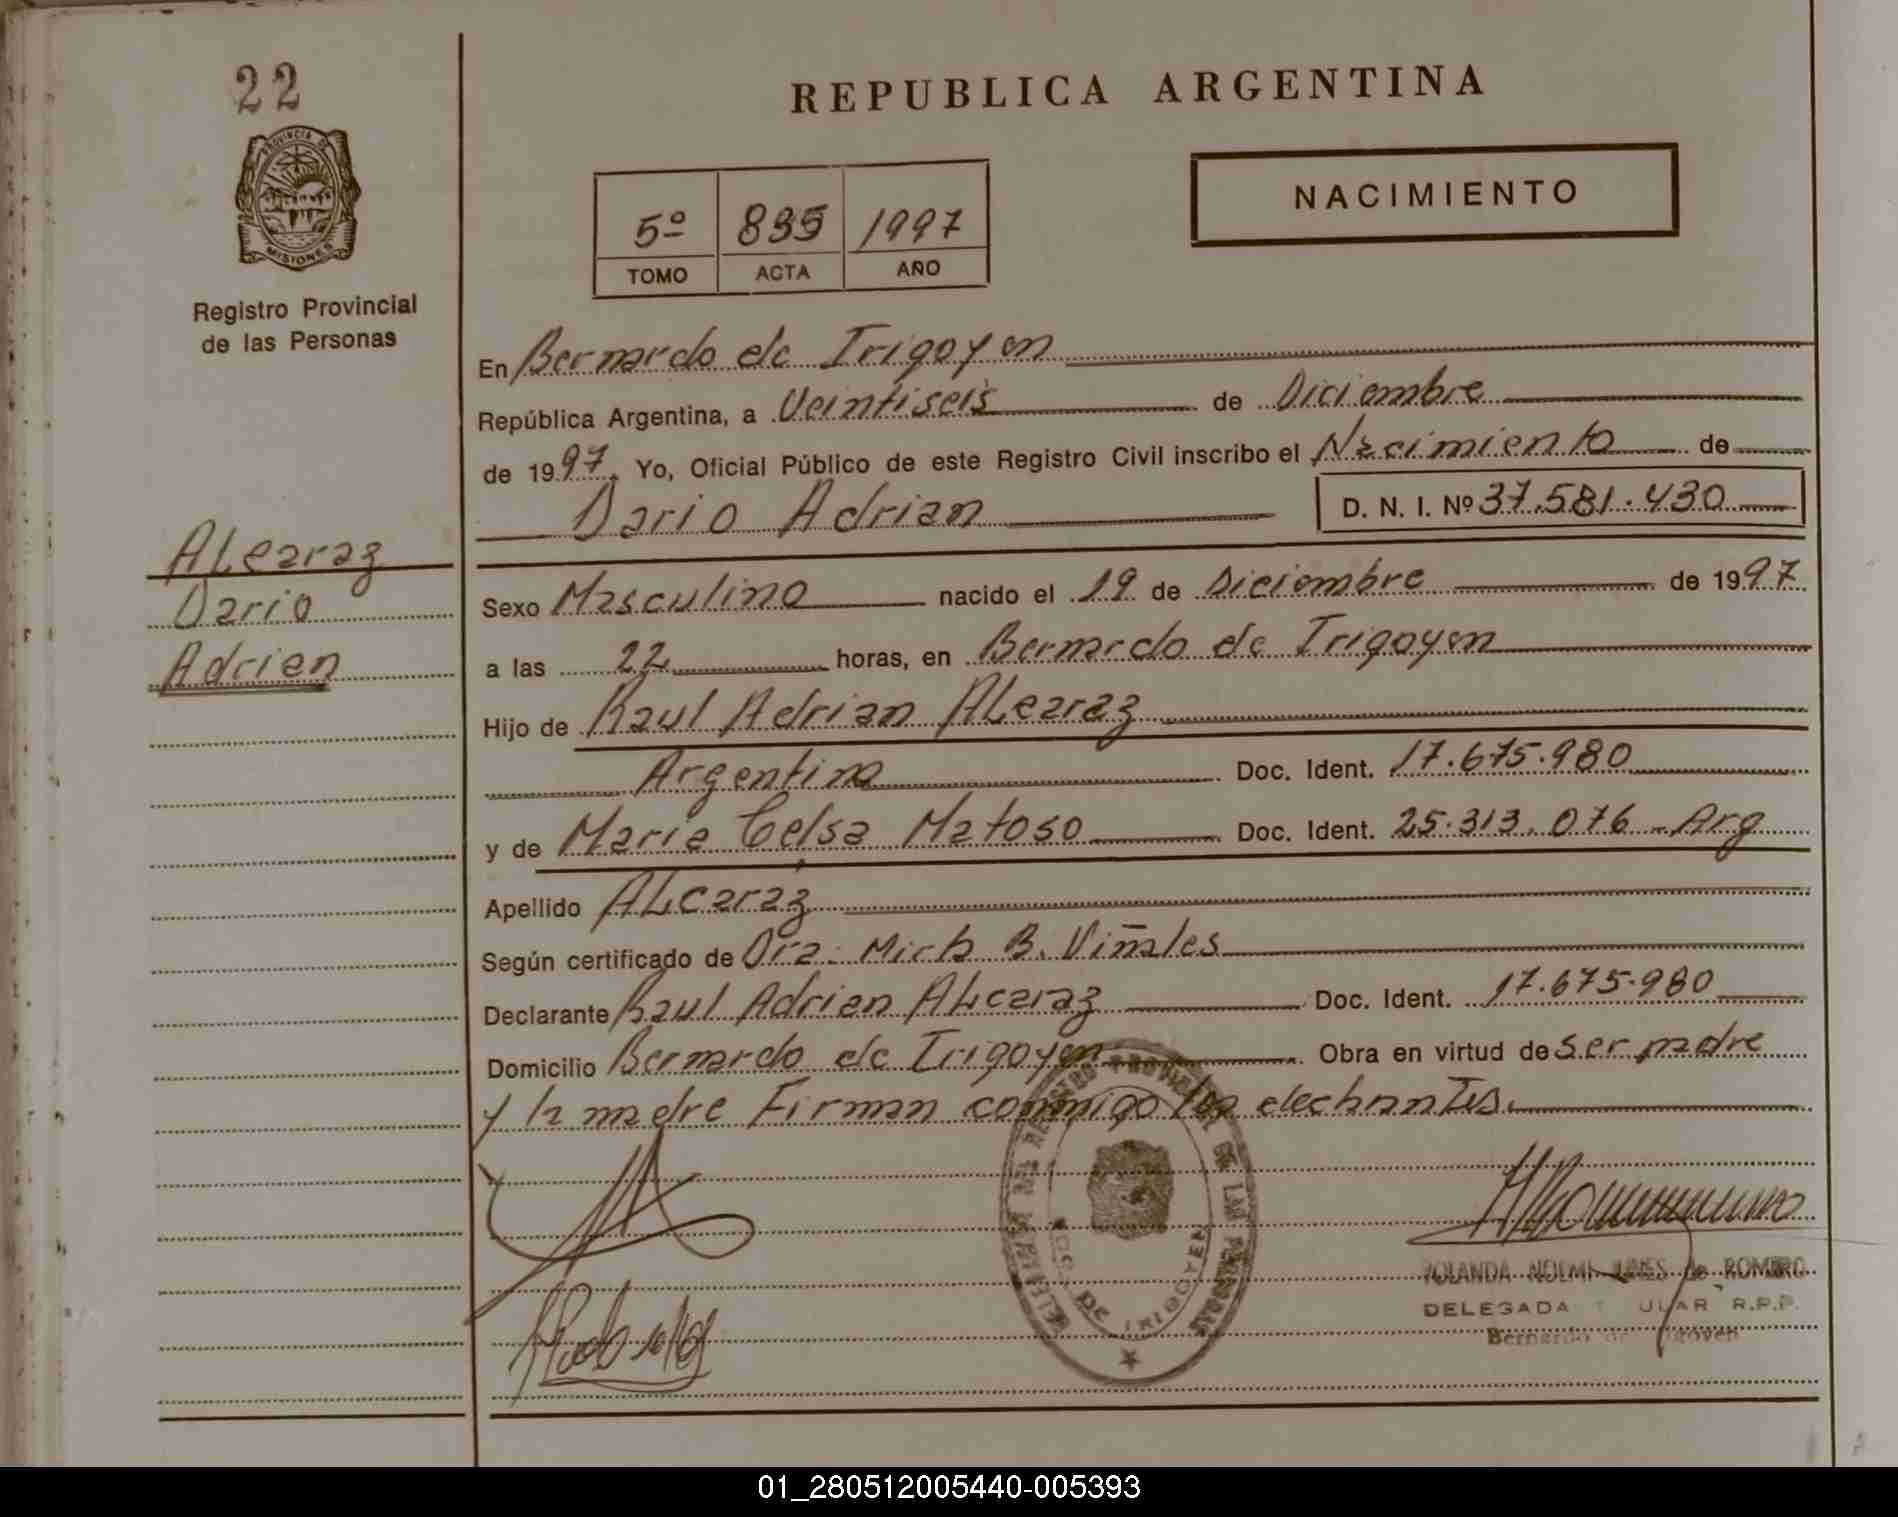 22
PROVINCIA DE
MISIONES
Registro Provincial
de las Personas
Alcaraz
Dario
Adrian
REPUBLICA ARGENTINA
NACIMIENTO
5º 895 1997
TOMO ACTA AÑO
En Bernardo de Irigoyen
República Argentina, a Veintiseis de Diciembre
de 1997. Yo, Oficial Público de este Registro Civil inscribo el Nacimiento de
Dario Adrian D. N. I. Nº 37.581.430
Sexo Masculino nacido el 19 de Diciembre de 1997
a las 22 horas, en Bernardo de Irigoyen
Hijo de Raul Adrian Alcaraz
Argentino Doc. Ident. 17.675.980
y de Maria Celsa Matoso Doc. Ident. 25.313.076 - Arg
Apellido Alcaraz
Según certificado de Dra. Mirta B. Viñales
Declarante Raul Adrian Alcaraz Doc. Ident. 17.675.980
Domicilio Bernardo de Irigoyen Obra en virtud de ser padre
y la madre Firman conmigo los declarantes.
REGISTRO PROVINCIAL DE LAS PERSONAS
BDO. DE IRIGOYEN
YOLANDA NOEMI de ROMERO
DELEGADA R.P.P.
Bernardo de
01_280512005440-005393